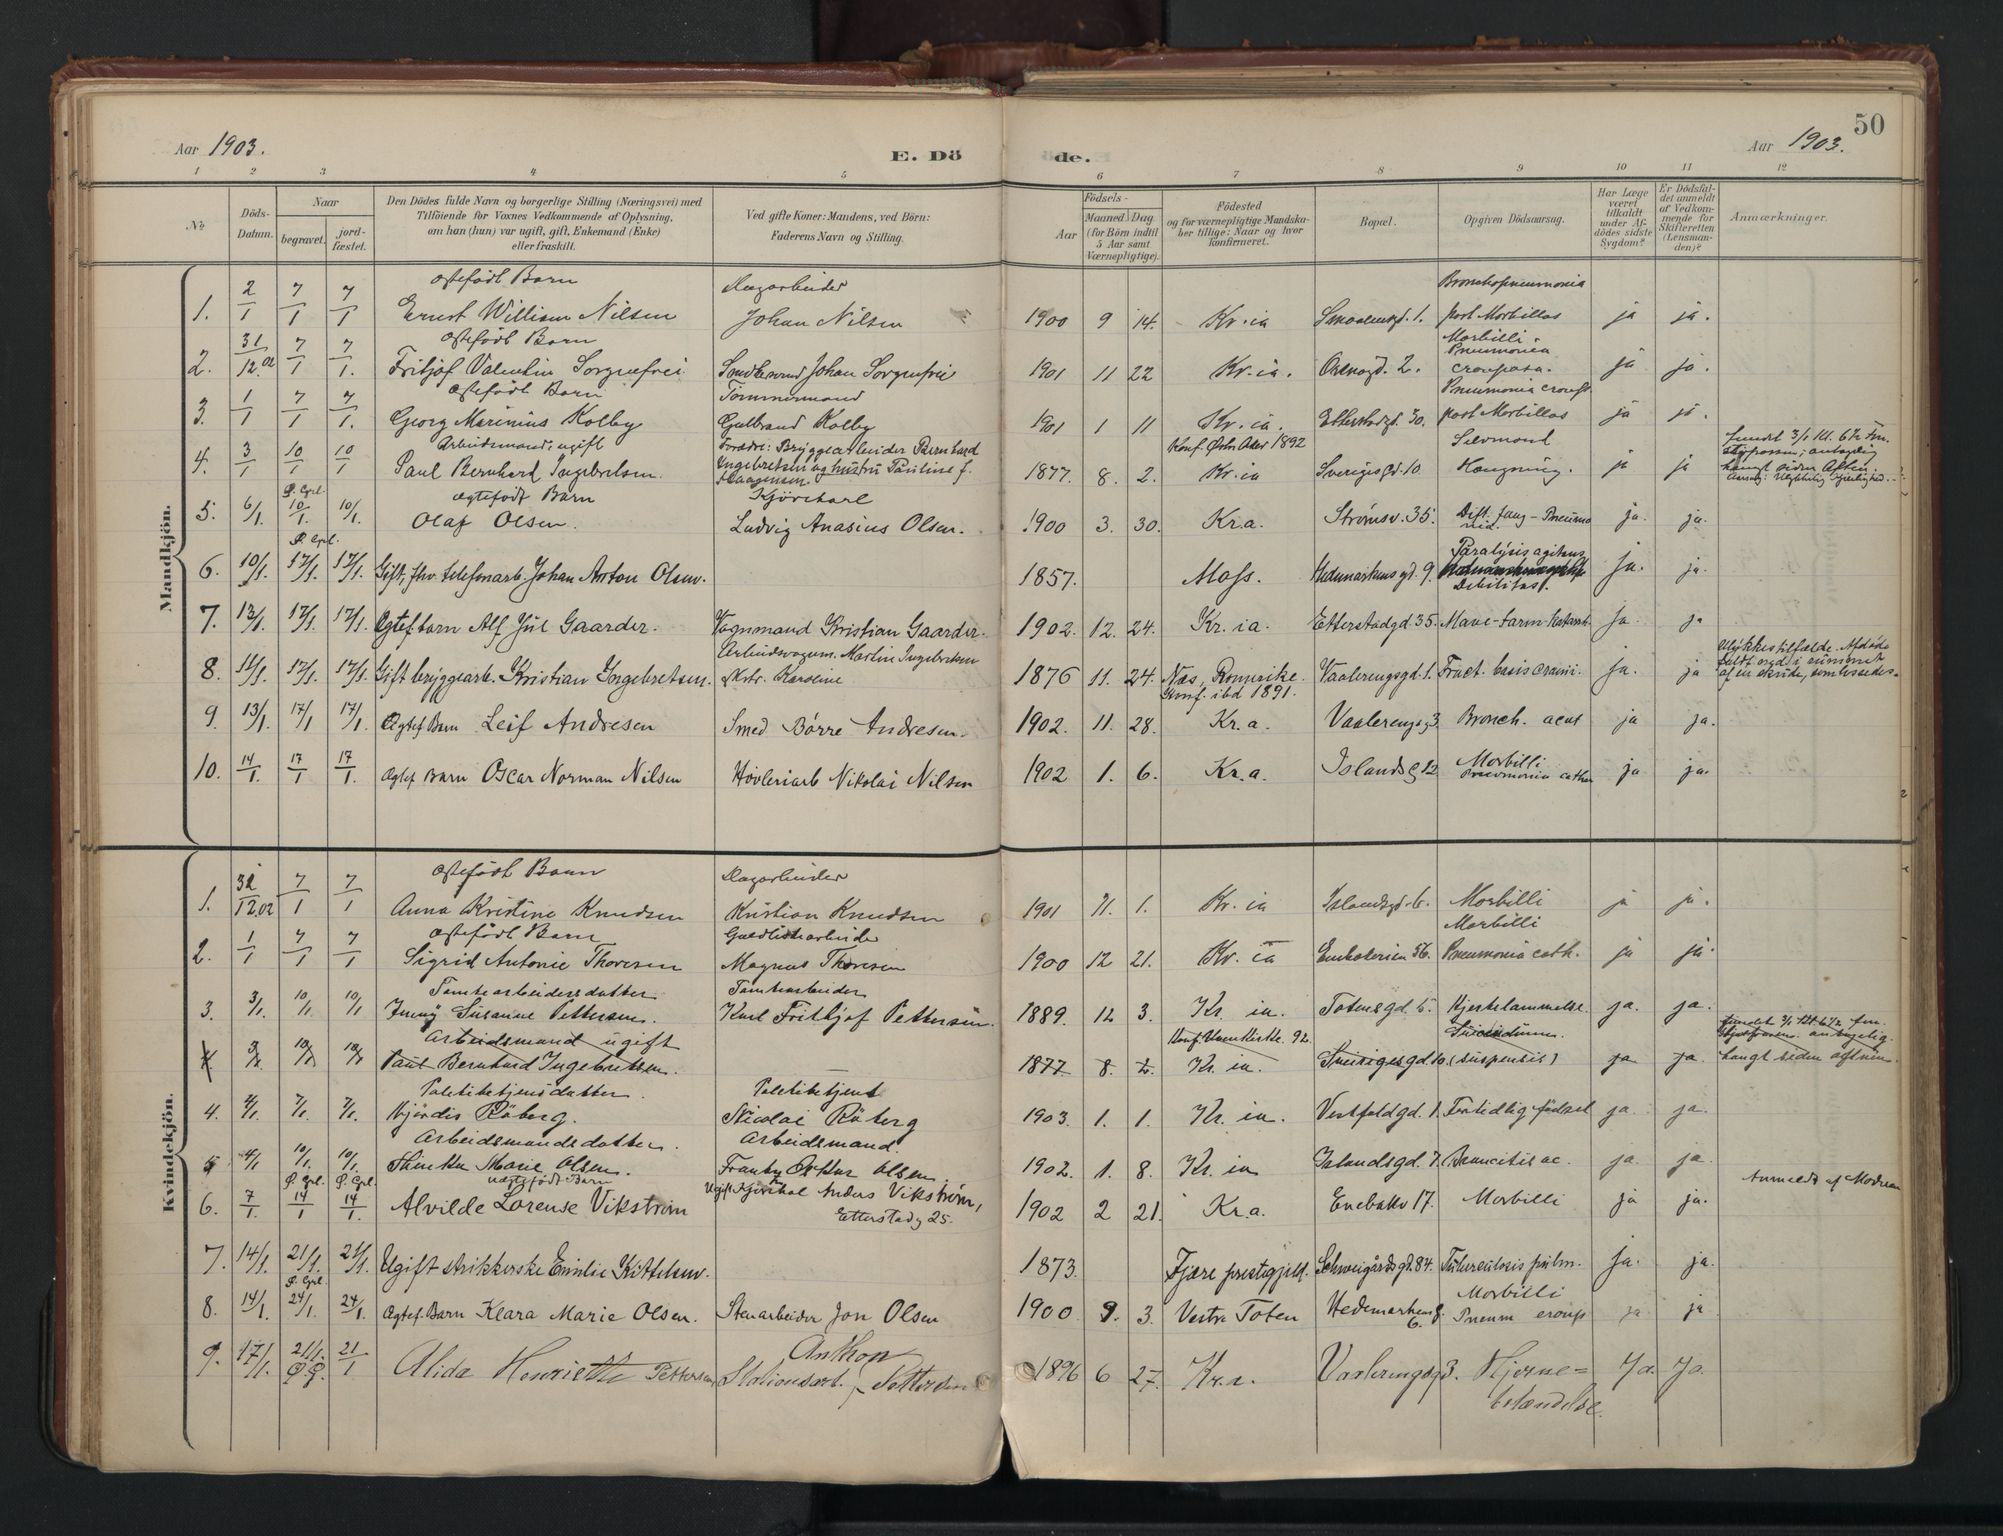 50
Aar 1903.
E. Dö
de.
Aar 1903.
1 2 3 4 5 6 7 8 9 10 11 12
No.
Döds-
Datum.
Naar
begravet.
jord-
fæstet.
Den Dödes fulde Navn og borgerlige Stilling (Næringsvei) med
Tilföiende for Voxnes Vedkommende af Oplysning,
om han (hun) var ugift, gift, Enkemand (Enke)
eller fraskilt.
Ved gifte Koner: Mandens, ved Börn:
Faderens Navn og Stilling.
Födsels-
Aar
Maaned Dag
(for Börn indtil
5 Aar samt
Værnepligtige).
Födested
og for værnepligtige Mandska-
ber tillige: Naar og hvor
konfirmeret.
Bopæl.
Opgiven Dödsaarsag.
Har Læge
været
tilkaldt
under Af-
dödes sidste
Sygdom?
Er Dödsfal-
det anmeldt
af Vedkom-
mende for
Skifteretten
(Lensman-
den)?
Anmærkninger.
Mandkjön.
2 7 7 ægtefödt Barn Dagarbeider Bronchopneumonia
1. 1 1 1 Ernst William Nilsen Johan Nilsen 1900 9 14. Kr.ia Smaalensgd. 1. post Morbillos ja ja.
31 7 7 ægtefödt Barn Morbilli
Pneumonia
2. 12.02 1 1. Fritjof Valentin Sorgnefrei Johan Sorgenfrei 1901 11 22 Kr.ia. 2. crouposa. ja ja.
1 7 7 ægtefödt Barn Tömmermand Pneumonia croup.
3. 1 1 1. Georg Marinius Kolby Gulbrand Kolby 1901 1 11 Kr.ia. Etterstadgd. 30. post Morbillos ja ja.
3 10 10 Arbeidsmand, ugift Foradre: Bryggearbeider Bernhard Konf. Østre Aker 1892 Selvmord fundet 3/1 Kl. 6½ Fm.
4. 1 1 1 Paul Bernhard Ingebretsen. Ingebretsen og hustru Pauline f. 1877. 8. 2. Kr.ia Sverigesgd. 10. Hængning. ja ja hængt siden Aften.
Haagensen
P. Cpl. ægtefödt Barn Kjörekarl
5. 6/1. 10/1 10/1. Olaf Olsen. Ludvig Anasius Olsen. 1900 3. 30. Kr.a. Strömsv. 35. Dift. faug-Pneumo
nia. ja. ja.
P. Cpl. Paralysis agitans
6. 10/1. 17/1. 17/1. Gift, fhv. telefonarb. Johan Anton Olsen. 1857. Moss. Hedemarkensgd. 9. Debilitas. ja. ja.
7. 13/1. 17/1. 17/1. Ægtef. barn Alf Jul Gaarder. Vognmand Kristian Gaarder. 1902. 12. 24. Kr.ia. Etterstadgd. 35. Mave-Tarm-Katarrh Ja. ja
Arbeidsvogm. Martin Ingebretsen Ulykkestilfælde. Afdöde
8. 11/1. 17/1. 17/1. Gift bryggearb. Kristian Ingebretsen. Hstr. Karoline 1876 11. 24. Næs, Romerike. Vaalerengsgd. 1. Fract. basis cranii. Ja. ja faldt ned i rummet
Konf. ibd 1891. af en skude,
9. 13/1. 17/1 17/1. Ægtef. Barn Leif Andresen Smed Börre Andresen. 1902. 11. 28. Kr.a. Vaalerengsg 3. Bronch. acut ja ja.
10. 14/1. 17/1 17/1. Ægtef Barn Oscar Norman Nilsen Hövleriarb Nikolai Nilsen 1902 1. 6. Kr.a. Islandsg 12 Morbilli
Pneumonia cathar ja ja.
Kvindekjön.
7 7 ægtefödt Barn Dagarbeider
1. 12.02 1 1 Anna Kristine Knudsen Kristian Knudsen 1901 11. 1. Kr.ia Islandsgd. 6. Morbilli ja ja.
1 7 7 ægtefödt Barn Guldlistearbeider Morbilli
2. 1 1 1 Sigrid Antonie Thoresen Magnus Thoresen 1900 12 21. Kr.ia 56. Pneumonia cath. ja ja.
Tomtearbeidersdatter Tomtearbeider
3. 3/1. 10/1. 10/1. Jenny Susanne Pettersen. Karl Frithjof Pettersen. 1889. 12 3. Kr. ia. Totensgd. 5. Hjertelammelse. ja. ja.
Arbeidsmand ugift Suicidium.
4 3/1 10/1 10/1 Paul Bernhard Ingebretsen. 1877 8. 2. Kr. ia. Sverigesgd. 10. (suspensis) ja ja. hængt siden aftnen.
Politibetjensdatter Politibetjent
4. 4/1. 7/1. 7/1. Hjördis Råberg. Nicolai Råberg 1903. 1. 1. Kr. ia. Vestfoldgd. 1. Fortidlig födsel ja ja.
Arbeidsmandsdatter. Arbeidsmand.
5. 4/1. 10/1. 10/1. Marie Olsen. Olsen 1902. 1. 8. Kr. ia Islandsgd. 7. Broncitis ac. ja. ja.
P. Cpl. P. Cpl. uægtefödt Barn Anmeldt af Modren
6. 7/1. 14/1 14/1. Alvilde Lorense Vikström Ugift Kjörekarl Anders Vikström,
Etterstadg 25. 1902 2 21. Kr.a. Enebakv 17. Morbilli ja ja.
7. 14/1. 21/1. 21/1. Ugift strikkerske Emilie Kittelsen. 1873. Fjære prestegjeld. Schweigårdsgd. 84. Tuberculosis pulm. Ja. ja.
P. Cpl. Morbilli
8. 14/1. 24/1. 24/1. Ægtef. Barn Klara Marie Olsen. Stenarbeider Jon Olsen 1900 9. 3. Vestre Toten Hedemarkensg.
6. Pneum croup ja ja
9. 17/1. 21/1. 21/1 Alida Henriette Pettersen Stationsarb. Anthon Pettersen 1896 6 27. Kr.a. Vaalerengsg 3. Hjerne-
betændelse. Ja. Ja.